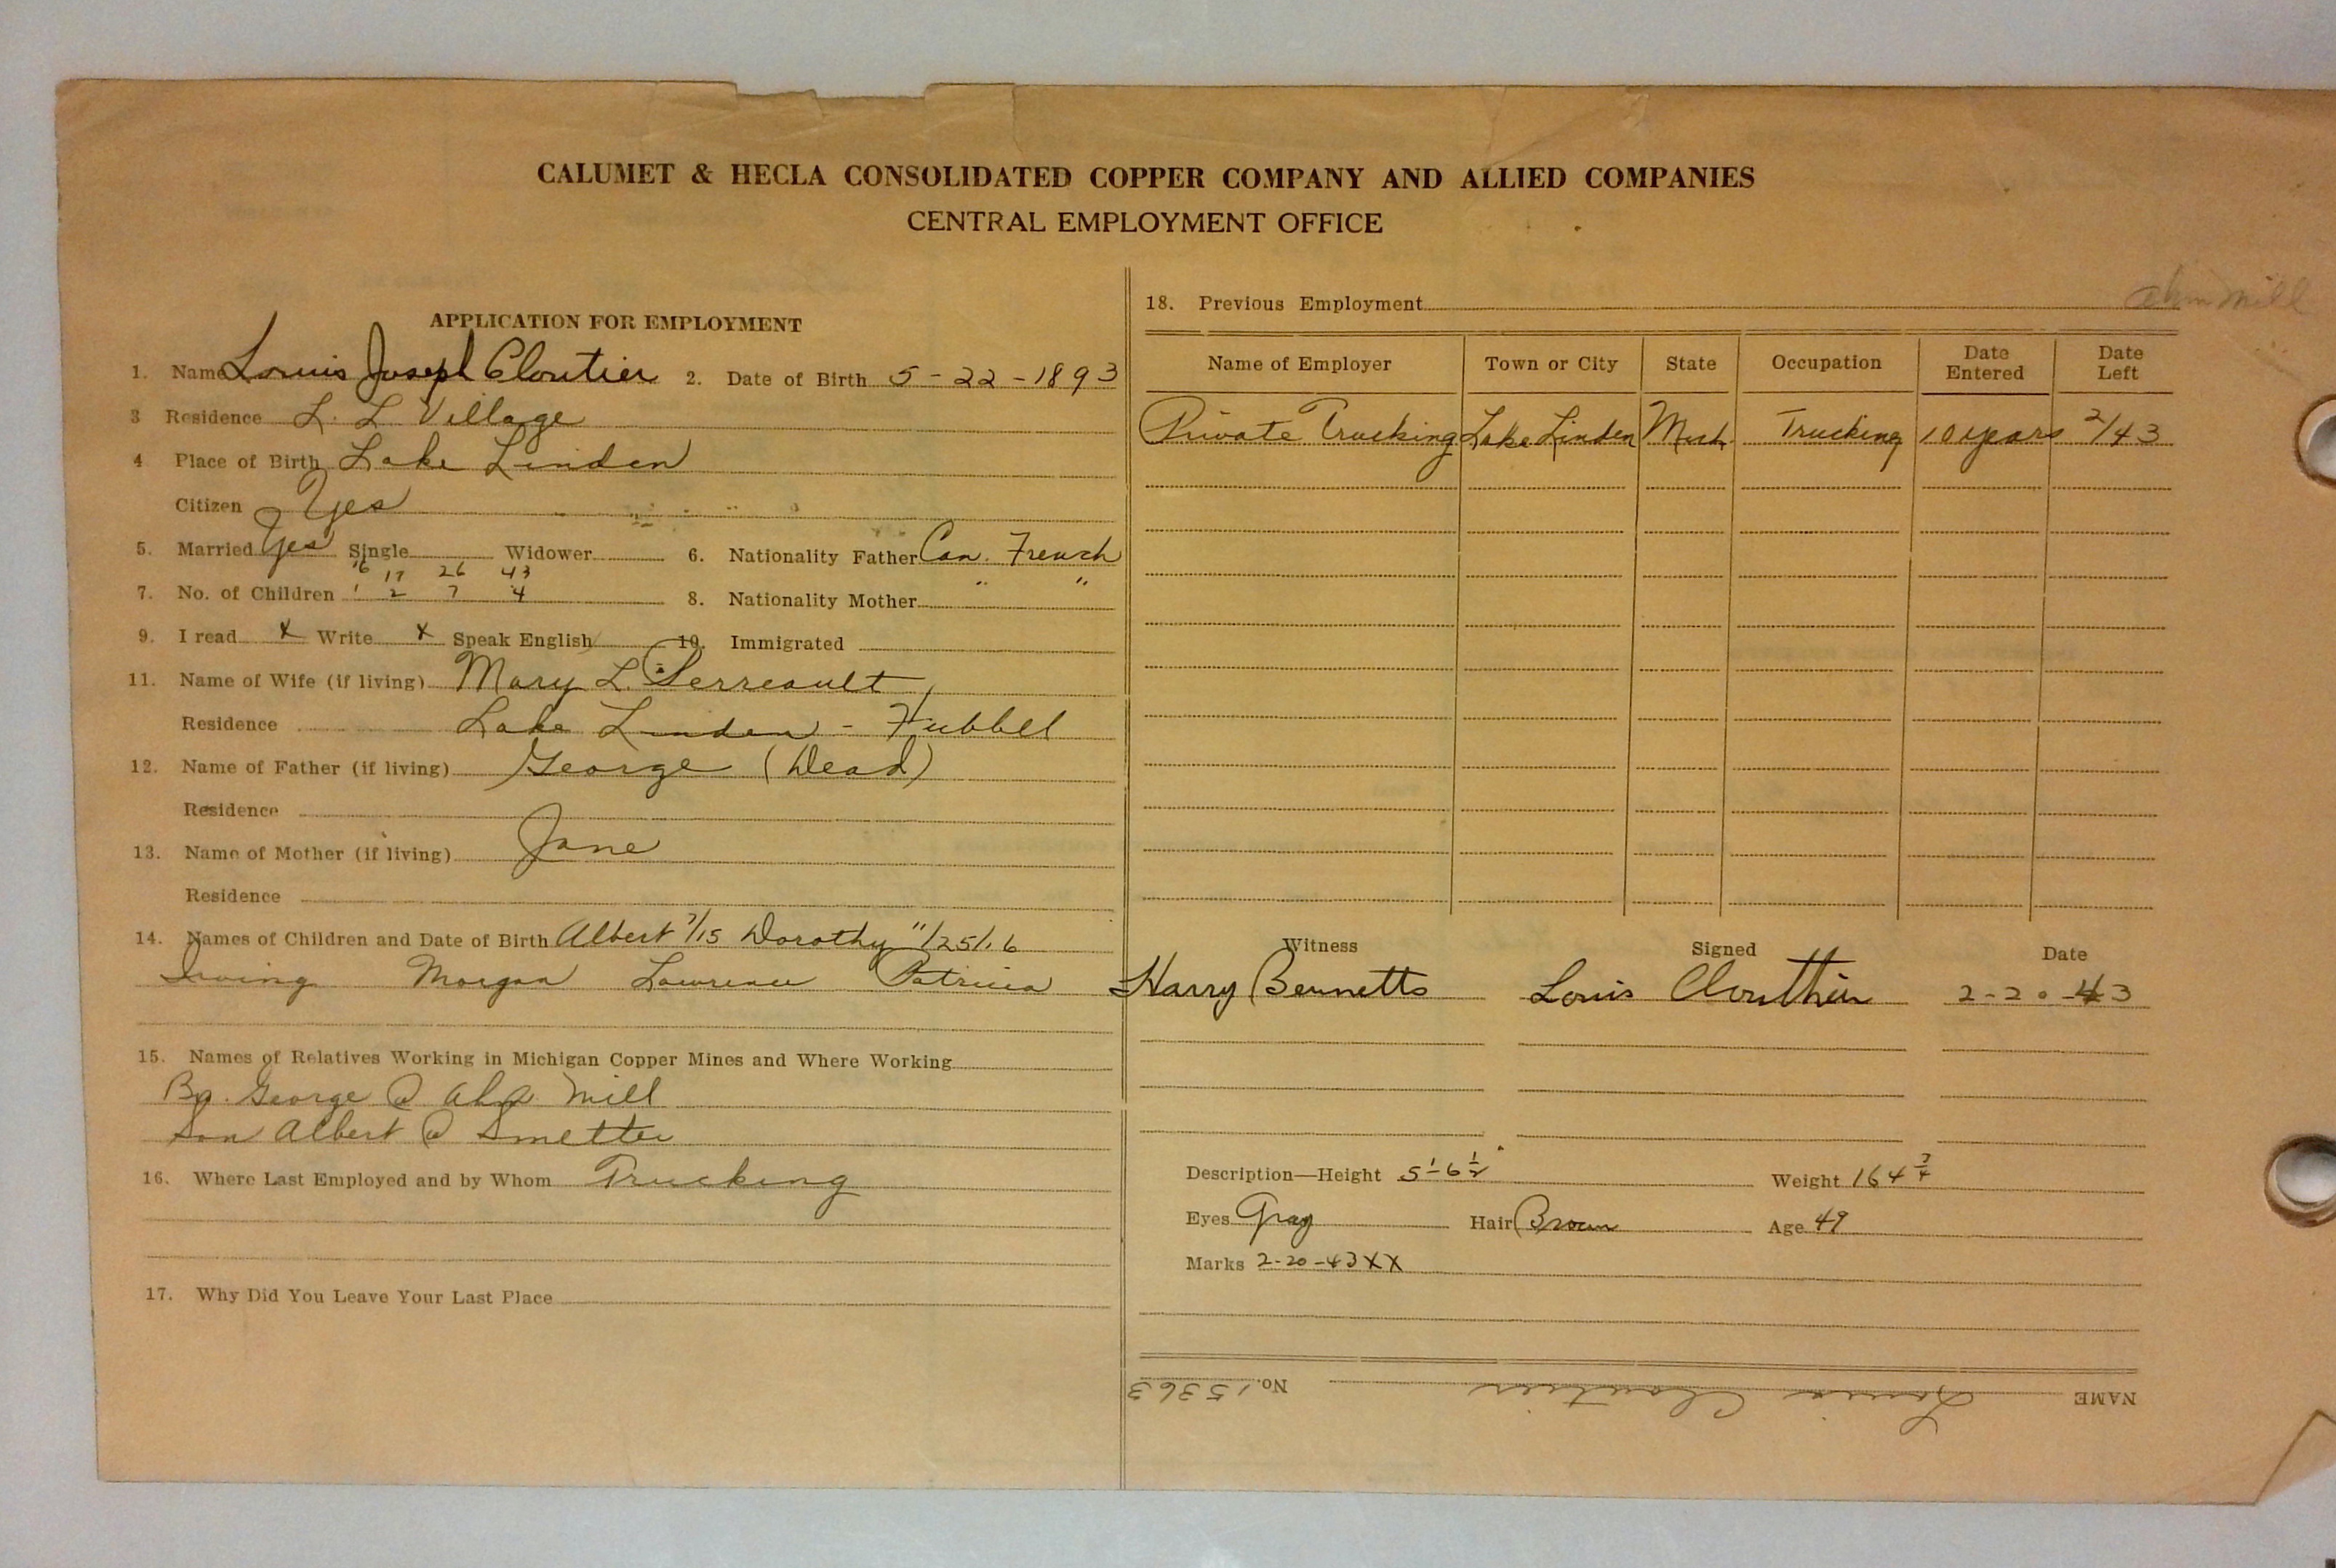 CALUMET & HECLA CONSOLIDATED COPPER COMPANY AND ALLIED COMPANIES
CENTRAL EMPLOYMENT OFFICE
APPLICATION FOR EMPLOYMENT
1. Name Louis Joseph Cloutier 2. Date of Birth 5-22-1893
3 Residence L. L Village
4 Place of Birth Lake Linden
Citizen Yes
5. Married Yes Single Widower 6. Nationality Father Can. French
16 17 26 43
7. No. of Children 1 2 7 4 8. Nationality Mother " "
9. I read X Write X Speak English 10. Immigrated
11. Name of Wife (if living) Mary L. Perreault
Residence Lake Linden - Hubbell
12. Name of Father (if living) George (Dead)
Residence
13. Name of Mother (if living) Jane
Residence
14. Names of Children and Date of Birth Albert 7/15 Dorothy 11/25/16
Irving Morgan Lawrence Patricia
15. Names of Relatives Working in Michigan Copper Mines and Where Working
Br. George @ Mill
Son Albert @ Smelter
16. Where Last Employed and by Whom Trucking
17. Why Did You Leave Your Last Place
18. Previous Employment Mill
Name of Employer Town or City State Occupation Date Entered Date Left
Private Trucking Lake Linden Mich. Trucking 10 years 2/43
Witness Signed Date
Harry Bennetts Louis Clouthier 2-20-43
Description—Height 5'-6 1/2" Weight 164 3/4
Eyes Gray Hair Brown Age 49
Marks 2-20-43 XX
NAME Louis Cloutier No. 15363